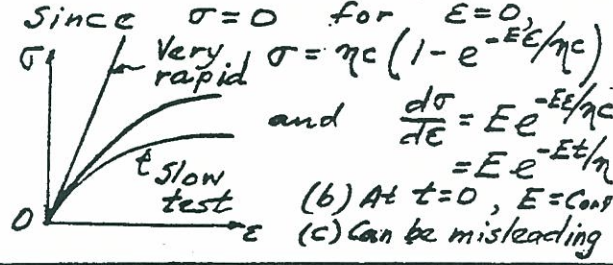 Since σ=0 for ε=0,
σ Very rapid σ = ηc (1-e^-Eε/ηc)
and dσ/dε = Ee^-Eε/ηc
= Ee^-Et/η
t Slow test
(b) At t=0, E=Con
(c) Can be misleading
0 ε